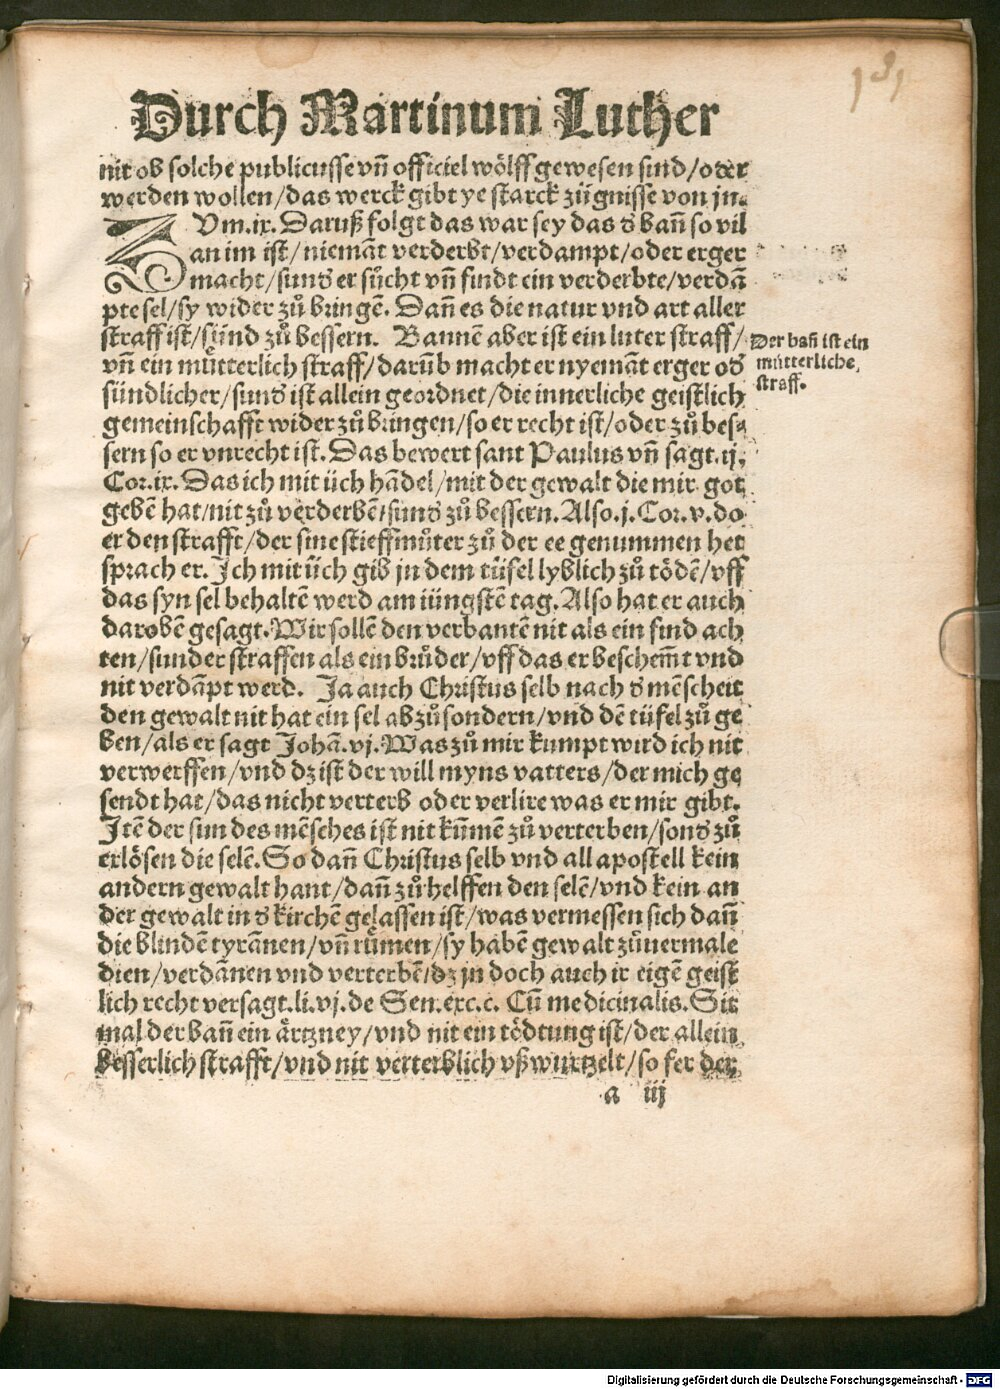 181
Durch Martinum Luther
nit ob solche publicusse vñ officiel wölff gewesen sind/oder
werden wollen/das werck gibt ye starck zügnisse von jn.
ZVm.ix. Daruß folgt das war sey das ď bañ so vil
an im ist/niemãt verderbt/verdampt/oder erger
macht/sunď er sůcht vñ findt ein verderbte/verdã
pte sel/sy wider zů bringẽ. Dañ es die natur vnd art aller
straff ist/sünd zů bessern. Bannẽ aber ist ein luter straff/
vñ ein mütterlich straff/darũb macht er nyemãt erger oď
sündlicher/sunď ist allein geordnet/die innerliche geistlich
gemeinschafft wider zů bringen/so er recht ist/oder zů bes⸗
sern so er vnrecht ist. Das bewert sant Paulus vñ sagt.ij.
Cor.ix. Das ich mit üch hãdel/mit der gewalt die mir got
gebẽ hat/nit zů verderbẽ/sunď zů bessern. Also.j.Cor.v.do
er den strafft/der sine stieffmůter zů der ee genummen het
sprach er. Ich mit üch gib jn dem tüfel lyblich zů tödẽ/vff
das syn sel behaltẽ werd am iüngstẽ tag. Also hat er auch
darobẽ gesagt. Wir sollẽ den verbantẽ nit als ein find ach
ten/sunder straffen als ein brůder/vff das er beschem̃t vnd
nit verdãpt werd. Ja auch Christus selb nach ď mẽscheit
den gewalt nit hat ein sel abzůsondern/vnd dẽ tüfel zů ge
ben/als er sagt Johã.vj. Was zů mir kumpt wird ich nit
verwerffen/vnd dz ist der will myns vatters/der mich ge
sendt hat/das nicht verterb oder verlire was er mir gibt.
Jtẽ der sun des mẽsches ist nit kũmẽ zů verterben/sonď zů
erlösen die selẽ. So dañ Christus selb vnd all apostell kein
andern gewalt hant/dañ zů helffen den selẽ/vnd kein an
der gewalt in ď kirchẽ gelassen ist/was vermessen sich dañ
die blindẽ tyrãnen/vñ rümen/sy habẽ gewalt zůuermale
dien/verdãnen vnd verterbẽ/dz jn doch auch ir eigẽ geist
lich recht versagt.li.vj.de Sen.exc.c. Cũ medicinalis. Sit
mal der bañ ein ärtzney/vnd nit ein tödtung ist/der allein
besserlich strafft/vnd nit verterblich vßwurtzelt/so fer der
a iij
Der bañ ist ein
mütterliche
straff.
Digitalisierung gefördert durch die Deutsche Forschungsgemeinschaft - DFG